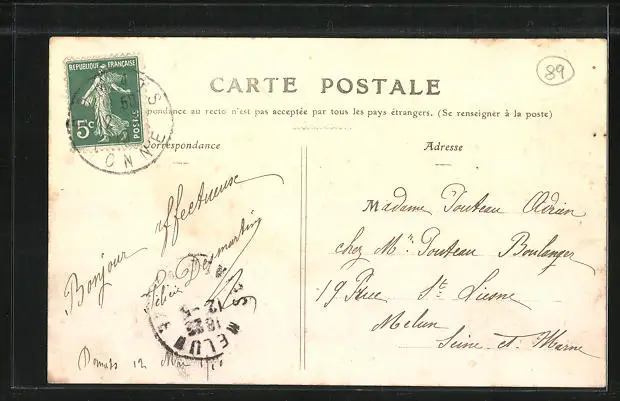 RÉPUBLIQUE FRANÇAISE
5c
POSTES
89
CARTE POSTALE
pondance au recto n'est pas acceptée par tous les pays étrangers. (Se renseigner à la poste)
Correspondance
Adresse
Bonjour affectueuse
Félicie Desmartin
MELUN
12 - 5
Domats 12
Madame Pouteau Adrien
chez Mr Pouteau Boulanger
19 Rue St
Melun
Seine et Marne